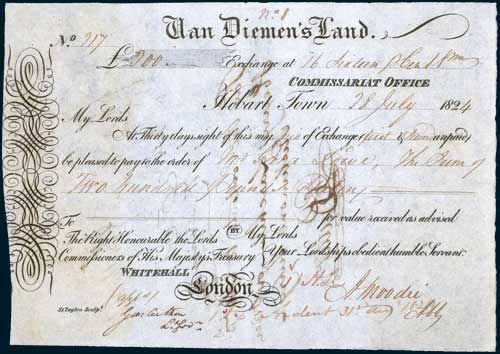 No 1
Van Diemen's Land.
No 217
£ 200 Exchange at 16 Sixteen P Cent Pm
COMMISSARIAT OFFICE
Hobart Town 28 July 1824
My Lords
At Thirty days sight of this my of Exchange (first & unpaid)
be pleased to pay to the order of Lowe, The Sum of
Two hundred Pounds
To for value received as advised
The Right Honourable the Lords BY My Lords
Commissioners of His Majesty's Treasury Your Lordships obedient humble Servant
WHITEHALL
London
A Moodie
Geo: Arthur
Lt Govr